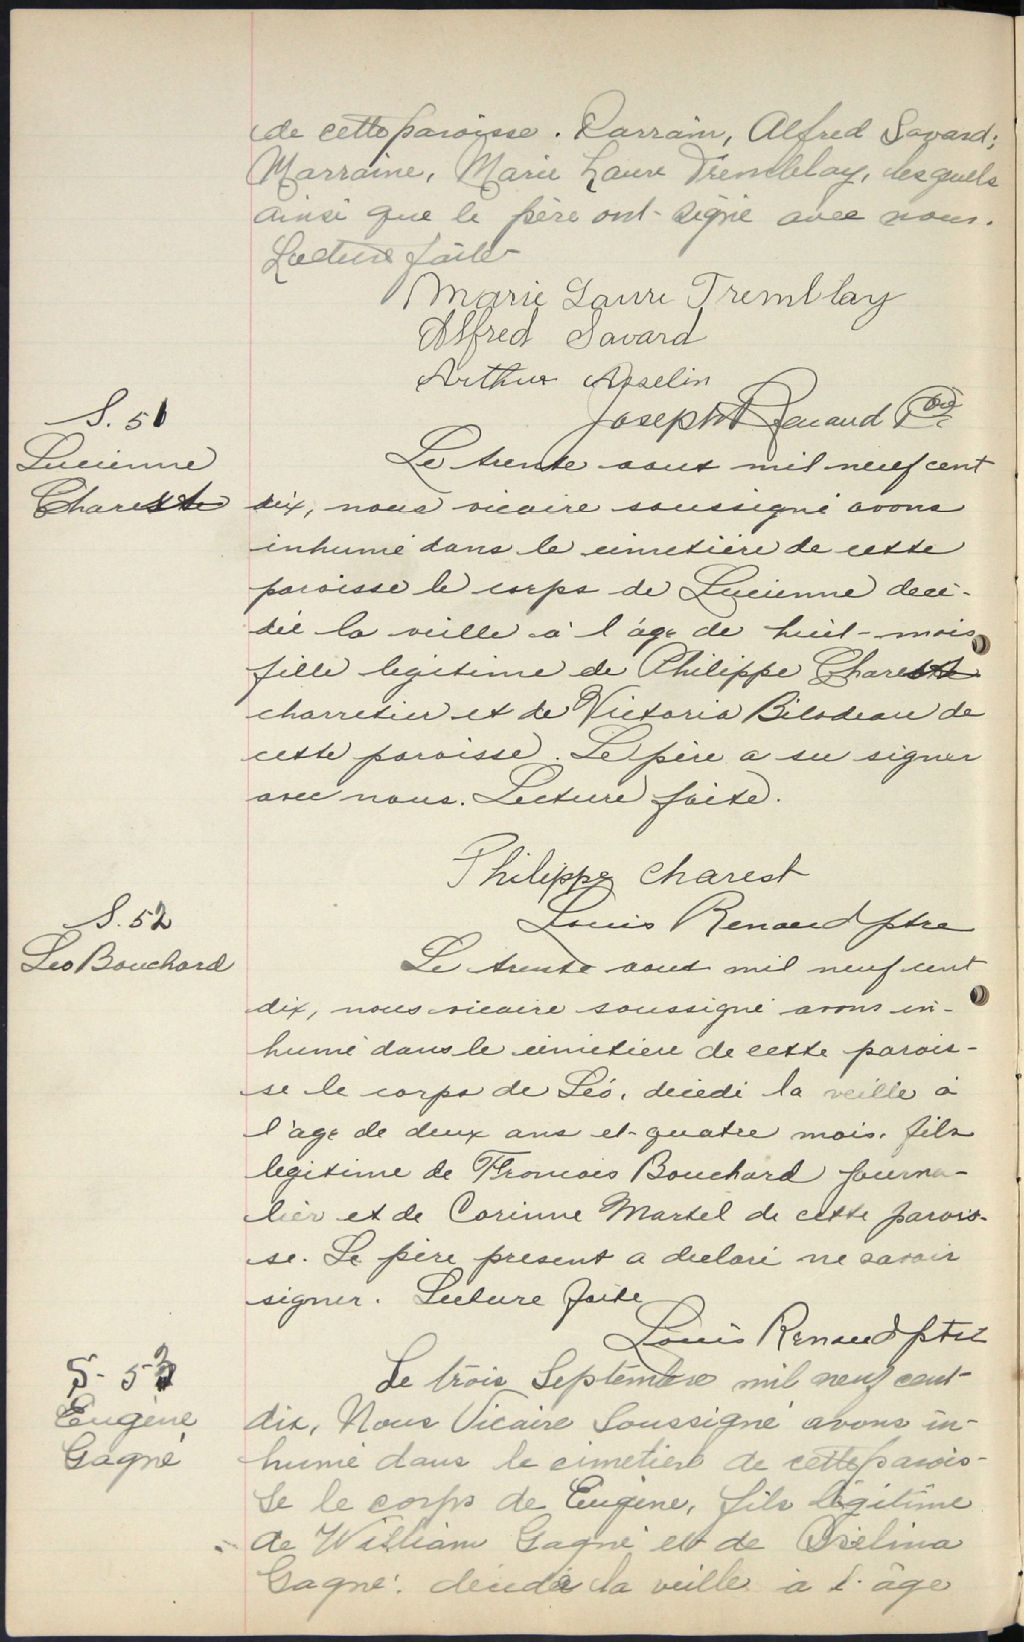 de cette paroisse. Parrain, Alfred Savard;
Marraine, Marie Laure Tremblay, lesquels
ainsi que le père ont signé avec nous.
Lecture faite
Marie Laure Tremblay
Alfred Savard
Arthur Asselin
Joseph Renaud
S. 51
Lucienne
Charest
Le trente aout mil neuf cent
dix, nous vicaire soussigné avons
inhumé dans le cimetière de cette
paroisse le corps de Lucienne décé-
dée la veille à l'age de huit mois
fille legitime de Philippe Charest
charretier et de Victoria Bilodeau de
cette paroisse. Le père a su signer
avec nous. Lecture faite.
Philippe Charest
Louis Renaud ptre
S. 52
Leo Bouchard
Le trente aout mil neuf cent
dix, nous vicaire soussigné avons in-
humé dans le cimetiere de cette parois-
se le corps de Léo, décédé la veille à
l'age de deux ans et quatre mois, fils
legitime de Francois Bouchard journa-
lier et de Corinne Martel de cette parois-
se. Le père present a declaré ne savoir
signer. Lecture faite
Louis Renaud ptre
S- 53
Eugène
Gagné
Le trois Septembre mil neuf cent
dix, Nous Vicaire Soussigné avons in-
humé dans le cimetière de cette parois-
se le corps de Eugène, fils légitime
de William Gagné et de
Gagné: décédé la veille à l'âge